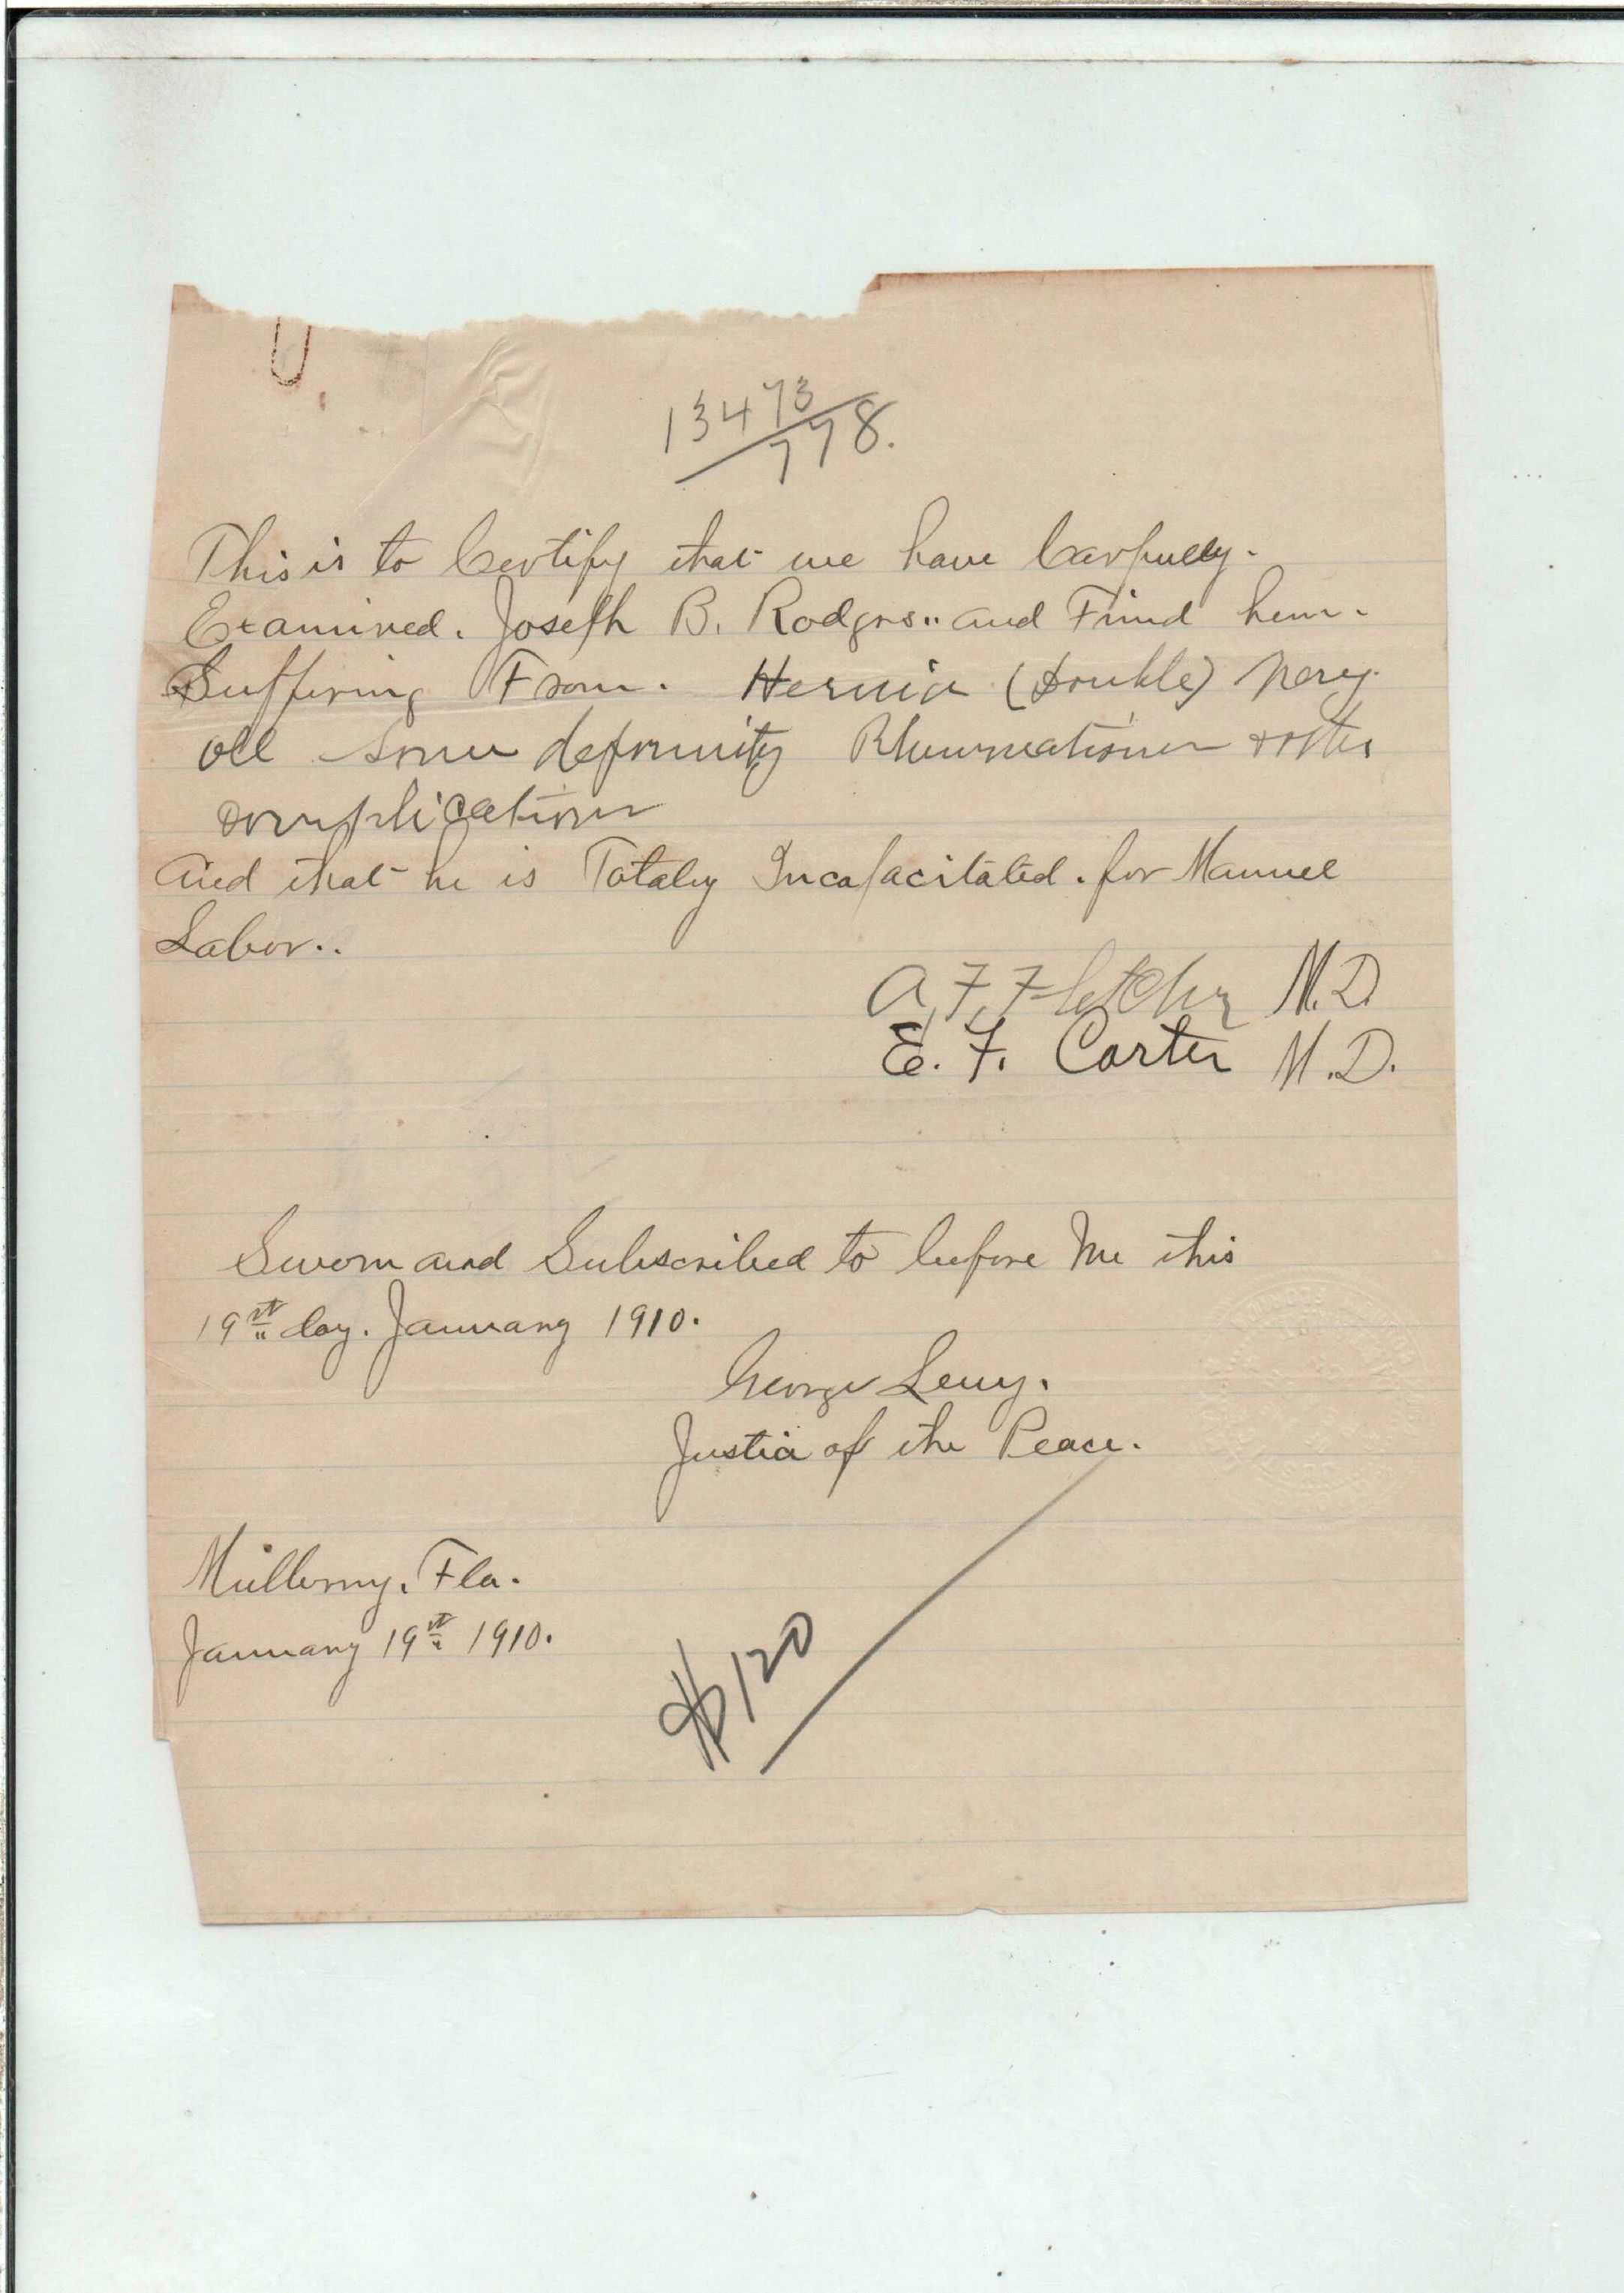 13473
778.
This is to Certify that we have Carfully.
Examined. Joseph B. Rodgrs.. and Find him.
Suffering From. Hernia (Double) Very
old some deformity Rhumatism + other
complications
and that he is Totaly Incapacitated. for Manuel
Labor..
A. F. Fletcher M.D
E. F. Carter M.D.
Sworn and Subscribed to before Me this
19st day. January 1910.
George Levy.
Justice of the Peace.
Mulberry. Fla.
January 19st 1910.
$120